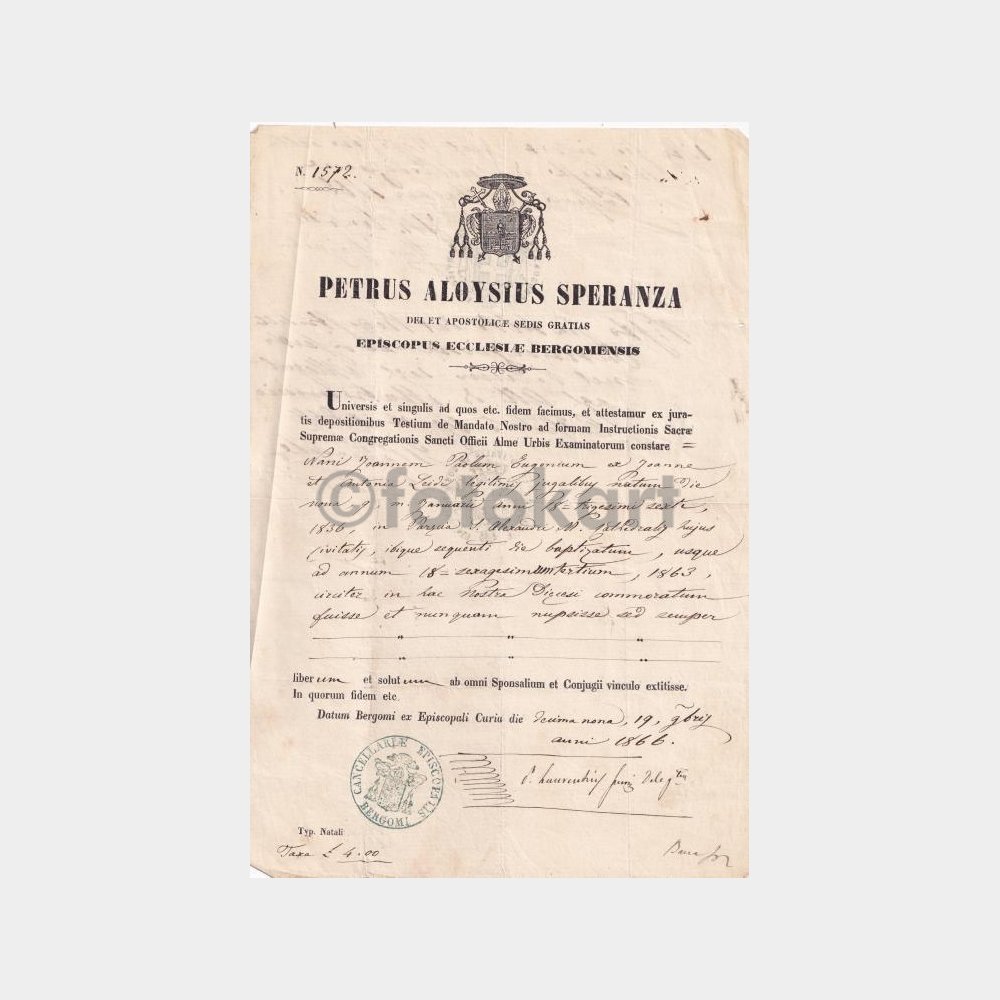 N. 1572.
PETRUS ALOYSIUS SPERANZA
DEI ET APOSTOLICÆ SEDIS GRATIAS
EPISCOPUS ECCLESIÆ BERGOMENSIS
Universis et singulis ad quos etc. fidem facimus, et attestamur ex jura-
tis depositionibus Testium de Mandato Nostro ad formam Instructionis Sacræ
Supremæ Congregationis Sancti Officii Alme Urbis Examinatorum constare =
Joannem Paolum Eugenium ex Joanne
et Antonia legitimis jugalibus natum Die
nona 9 Januarii anni 18= trigesimi sexti
1836, in S. Alexandri M. Cathedralis hujus
Civitatis, ibique sequenti die baptizatum, usque
ad annum 18= sexagesimumtertium, 1863,
circiter in hac Nostra Diœcesi commoratum
fuisse et nunquam nupsisse sed semper
liberum et solutum ab omni Sponsalium et Conjugii vinculo extitisse.
In quorum fidem etc
Datum Bergomi ex Episcopali Curia die decima nona, 19, 9bris
anni 1866.
CANCELLARIÆ EPISCOPALIS
BERGOMI
Typ. Natali
Taxa £ 4.00
©fotokart